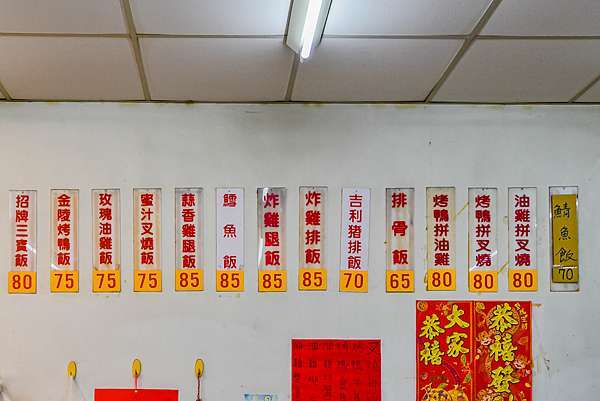 招牌三寶飯
80
金陵烤鴨飯
75
玫瑰油雞飯
75
蜜汁叉燒飯
75
蒜香雞腿飯
85
鱈魚飯
85
炸雞腿飯
85
炸雞排飯
85
吉利豬排飯
70
排骨飯
65
烤鴨拼油雞
80
烤鴨拼叉燒
80
油雞拼叉燒
80
鯖魚飯
70
大家恭禧
恭禧發